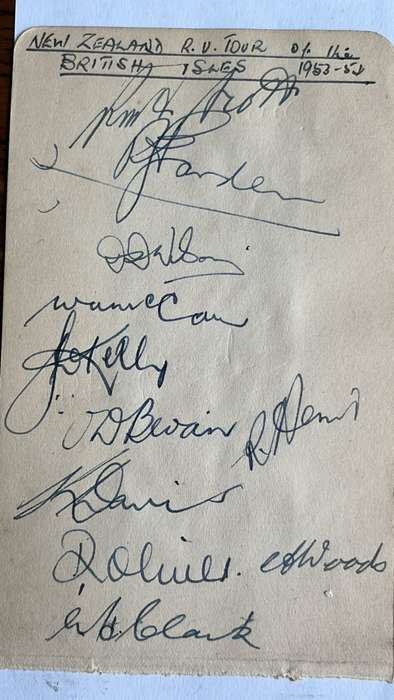 NEW ZEALAND R.U. TOUR of the
BRITISH ISLES 1953-54
R J Jarden
D D Wilson
W A McCaw
J W Kelly
V D Bevan
K Davis
D Oliver. C A Woods
W H Clark